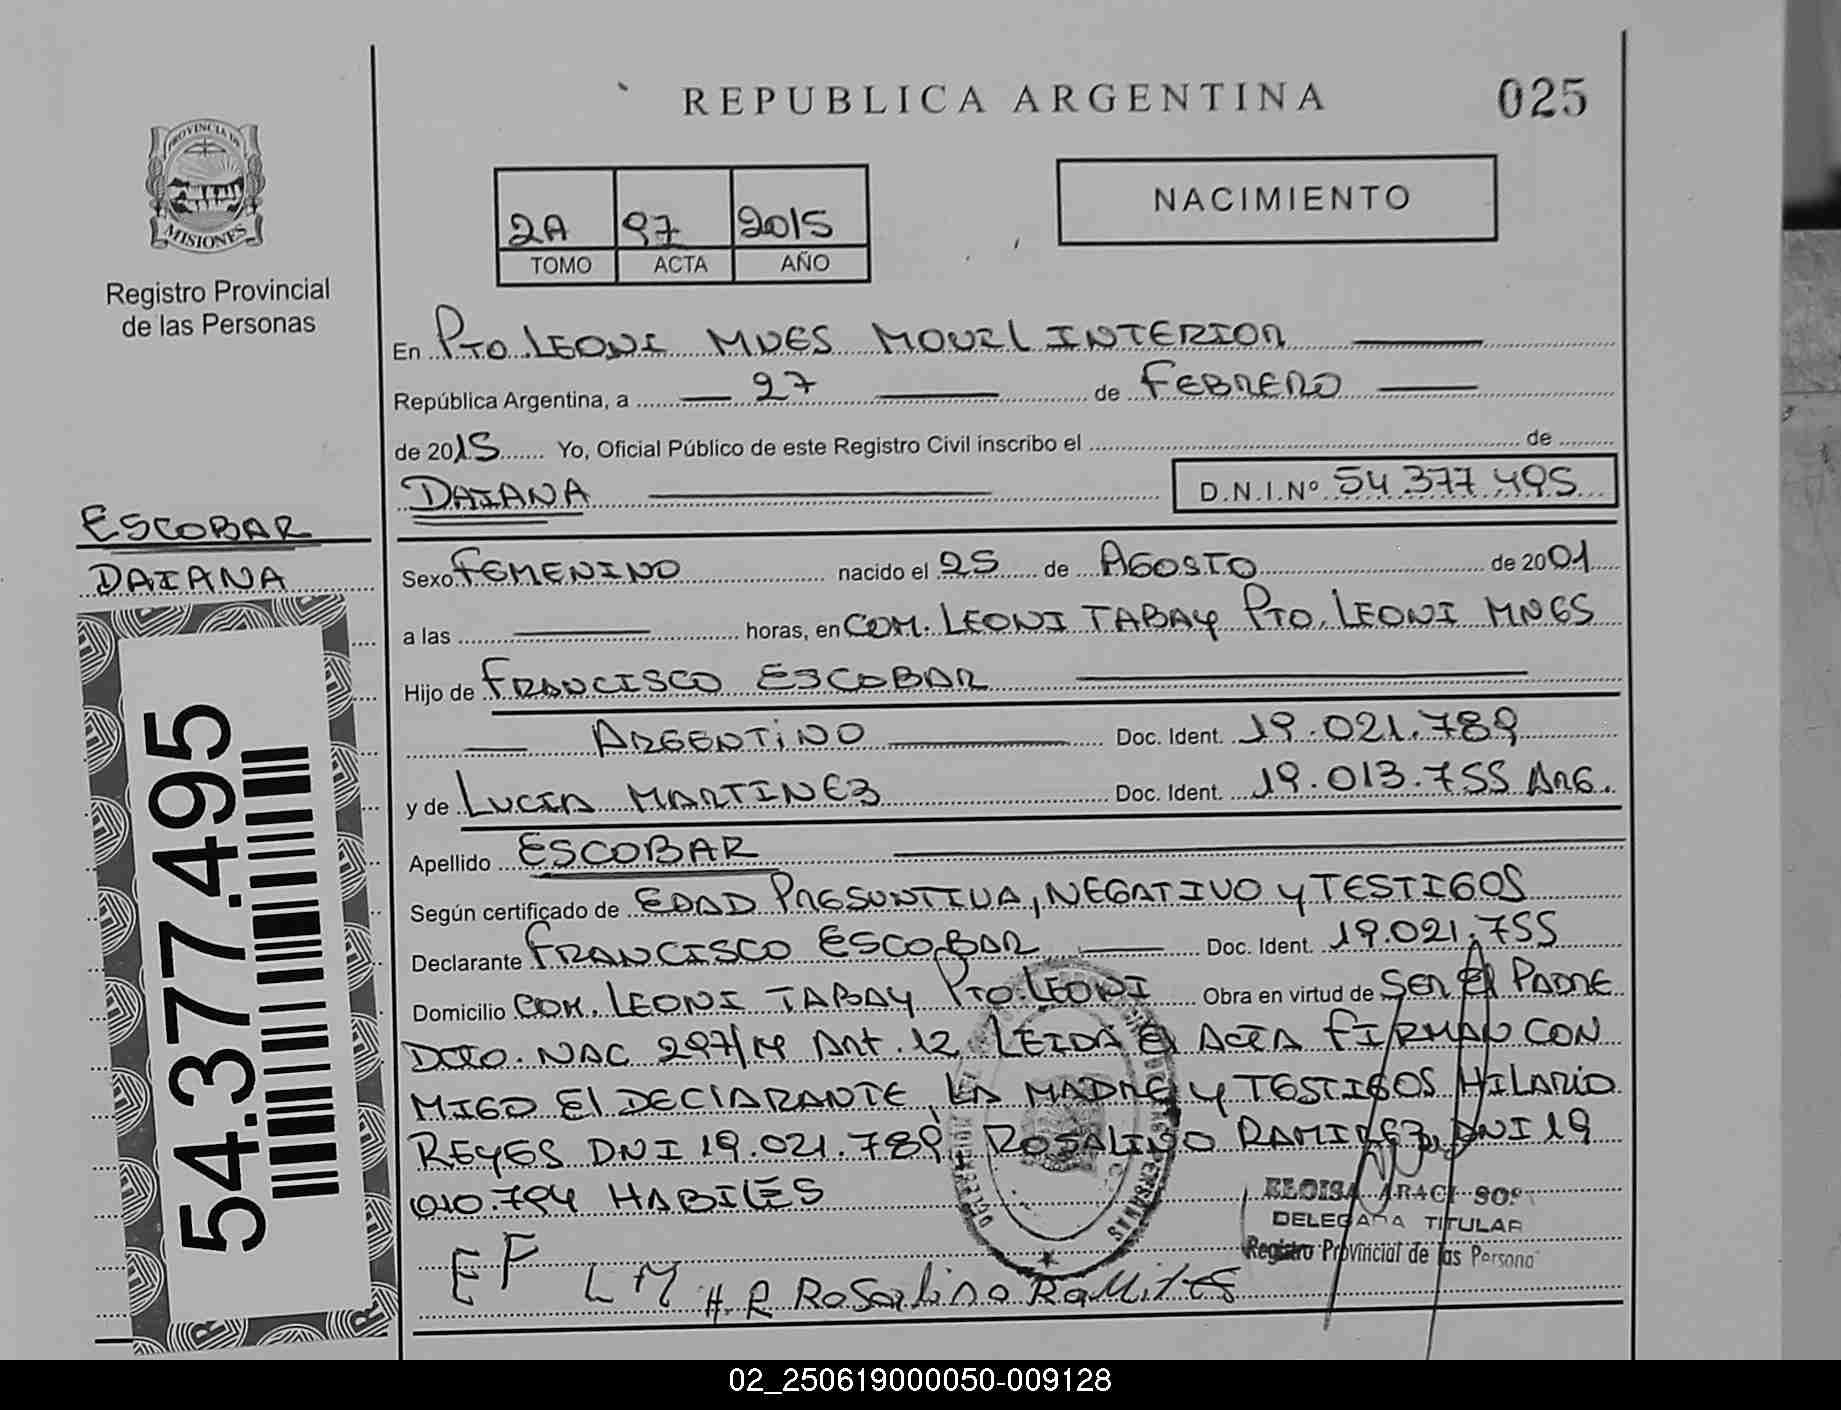 REPUBLICA ARGENTINA
025
PROVINCIA DE
MISIONES
Registro Provincial
de las Personas
2A 97 2015
TOMO ACTA AÑO
NACIMIENTO
En Pto. LEONI MNES MOVIL INTERIOR
República Argentina, a 27 de FEBRERO
de 2015 Yo, Oficial Público de este Registro Civil inscribo el de
DAIANA D.N.I.Nº 54.377.495
ESCOBAR
DAIANA
Sexo FEMENINO nacido el 25 de AGOSTO de 2001
a las horas, en COM. LEONI TABAY Pto. LEONI MNES
Hijo de FRANCISCO ESCOBAR
ARGENTINO Doc. Ident. 19.021.789
y de LUCIA MARTINEZ Doc. Ident. 19.013.755 ARG.
Apellido ESCOBAR
Según certificado de EDAD PRESUNTIVA, NEGATIVO y TESTIGOS
Declarante FRANCISCO ESCOBAR Doc. Ident. 19.021.755
Domicilio COM. LEONI TABAY Pto. LEONI Obra en virtud de SER El PADRE
DCTO. NAC 297/14 Art. 12 LEIDA El ACTA FIRMAN CON
MIGO El DEClARANTE, LA MADRE y TESTIGOS HILARIO
REYES DNI 19.021.789 ROSALINO RAMIREZ DNI 19
010.794 HABILES
54.377.495
EF LM H.R Rosalino Ramires
ELOISA ARACI
DELEGADA TITULAR
Registro Provincial de las Persona
02_250619000050-009128